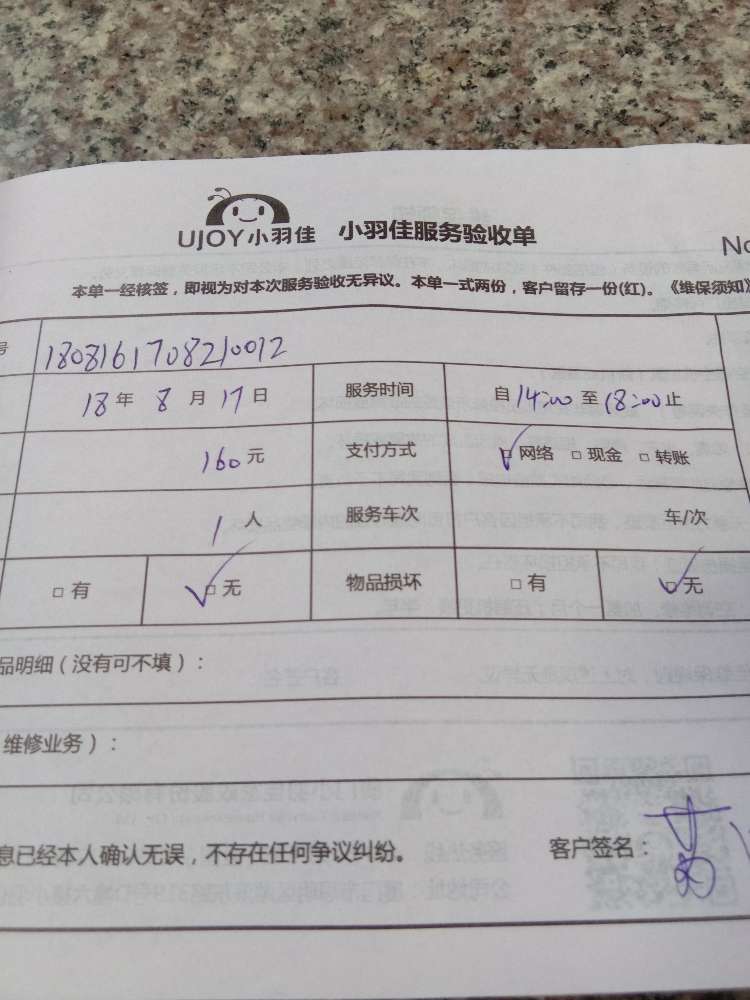 UJOY小羽佳 小羽佳服务验收单
No
本单一经核签，即视为对本次服务验收无异议。本单一式两份，客户留存一份(红)。《维保须知》
号 1808161708210012
18年 8月 17日 服务时间 自14:00至18:00止
160元 支付方式 网络 现金 转账
1人 服务车次 车/次
有 无 物品损坏 有 无
品明细（没有可不填）：
维修业务）：
息已经本人确认无误，不存在任何争议纠纷。 客户签名：